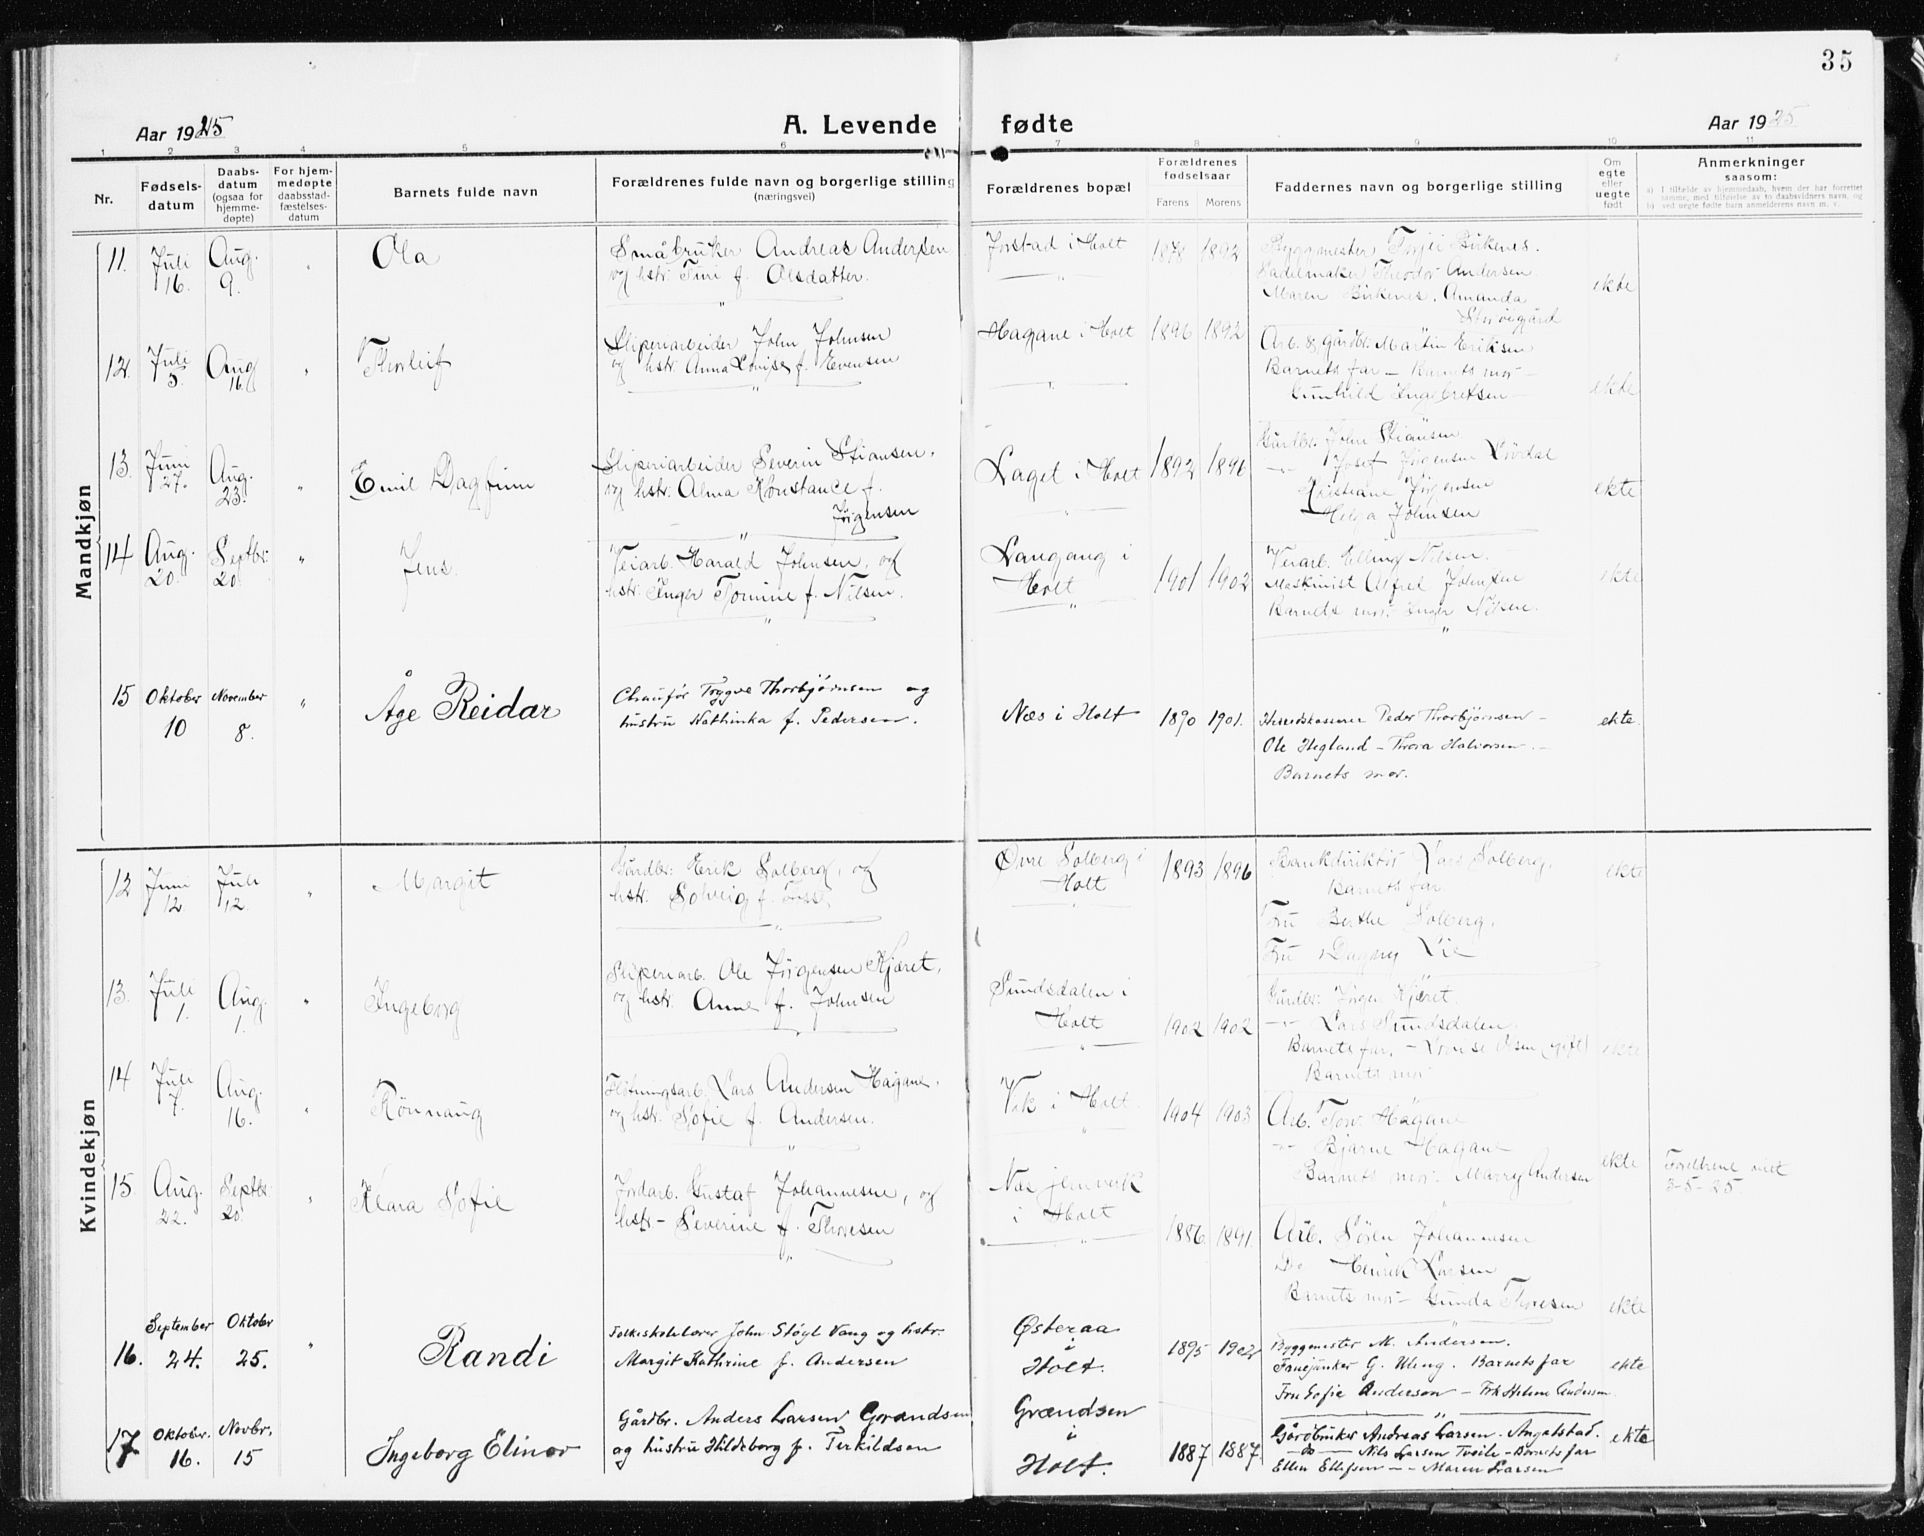 35
Aar 1925
A. Levende fødte
Aar 1925
1 2 3 4 5 6 7 8 9 10 11
Nr.
Fødsels-
datum
Daabs-
datum
(ogsaa for
hjemme-
døpte)
For hjem-
medøpte
daabsstad-
fæstelses-
datum
Barnets fulde navn
Forældrenes fulde navn og borgerlige stilling
(næringsvei)
Forældrenes bopæl
Forældrenes
fødselsaar
Farens Morens
Faddernes navn og borgerlige stilling
Om
egte
eller
uegte
født
Anmerkninger
saasom:
a) I tilfælde av hjemmedaab, hvem der har forrettet
samme, med tilføielse av to daabsvidners navn, og
b) ved uegte fødte barn anmelderens navn m. v.
Mandkjøn
11. Juli 16. Aug. 9. " Ola
Småbruker Andreas Andersen
og hstr. Tini f. Olsdatter.
Jorstad i Holt 1878 1892
Byggmester Terjei Birkenes.
Sadelmaker Theodor Andersen
Maren Birkenes. Amanda
ekte
12. Juli 5. Aug 16. " Thorleif
Sliperiarbeider John Johnsen
og hstr. Anna Lovise f. Evensen
Hagane i Holt 1896 1892
Arb. & gårdbr. Martin Eriksen
Barnets far – Barnets mor –
Gunhild Ingebretsen
ekte
13. Juni 27. Aug. 23. " Emil Dagfinn
Sliperiarbeider Severin Stiansen,
og hstr. Alma Konstance f.
Jørgensen
Laget i Holt 1892 1896
Gårdbr. John Stiansen
–"– Josef Jørgensen Lövdal
Kristiane Jørgensen
Helga Johnsen
ekte
14 Aug. 20. Septbr. 20. " Jens.
Veiarb. Harald Johnsen, og
hstr. Inger Tomine f. Nilsen.
Langang i
Holt
1901 1902
Veiarb. Elling Nilsen.
Maskinist Alfred Johnsen
Barnets mor. Inger Nilsen.
ekte
15 Oktober 10 November 8. " Åge Reidar
Chaufør Trygve Thorbjørnsen og
hustru Kathinka f. Pedersen.
Næs i Holt 1890 1901.
Herredskasserer Peder Thorbjørnsen –
Ole Hegland – Thora Halvorsen. –
Barnets mor.
ekte.
Kvindekjøn
12 Juni 12. Juli 12. " Margit
Gårdbr. Erik Solberg, og
hstr. Solveig f.
Øvre Solberg i
Holt
1893 1896
Bankdirektør Lars Solberg.
Barnets far.
Fru Berthe Solberg.
Fru Dagny Lie
ekte
13. Juli 1. Aug. 1. " Ingeborg
Sliperiarb. Ole Jørgensen Kjæret,
og hstr. Anne f. Johnsen
Sundsdalen i
Holt
1902 1902
Gårdbr. Jørgen Kjæret.
–"– Lars Sundsdalen.
Barnets far, – Lovise Olsen (gift)
Barnets mor
ekte
14 Juli 7. Aug. 16. " Rönnaug
Fløtningsarb. Lars Andersen Hagane,
og hstr. Sofie f. Andersen.
Vik i Holt. 1904 1903
Arb. Tov Hagane
–"– Bjarne Hagane
Barnets mor. Marry Andersen
ekte
Foreldrene viet
3-5-25.
15 Aug. 22. Septbr. 20. " Klara Sofie
Jordarb. Gustaf Johannesen, og
hstr. – Severine f. Thoresen
Næs jernverk
i Holt
1886. 1891.
Arb. Sören Johannesen
Do Henrik Larsen
Barnets mor – Gunda Thoresen
ekte
16. September 24. Oktober 25. " Randi
Folkeskolelærer John Støyl Vang og hstr.
Margit Kathrine f. Andersen
Østeraa
i
Holt.
1895 1902
Byggmester M. Andersen.
Fanejunker G. Uleng. Barnets far
Fru Sofie Anderson – Frk Helene Andersen
ekte
17 Oktober. 16. Novbr. 15 Ingeborg Elinor
Gårdbr. Anders Larsen Grændsen
og hustru Hildeborg f. Terkildsen
Grændsen
i
Holt.
1887 1887.
Gårdbruker Andreas Larsen. Angelstad.
– do – Nils Larsen Tveite – Barnets far
Ellen Ellefsen – – Maren Larsen
ekte